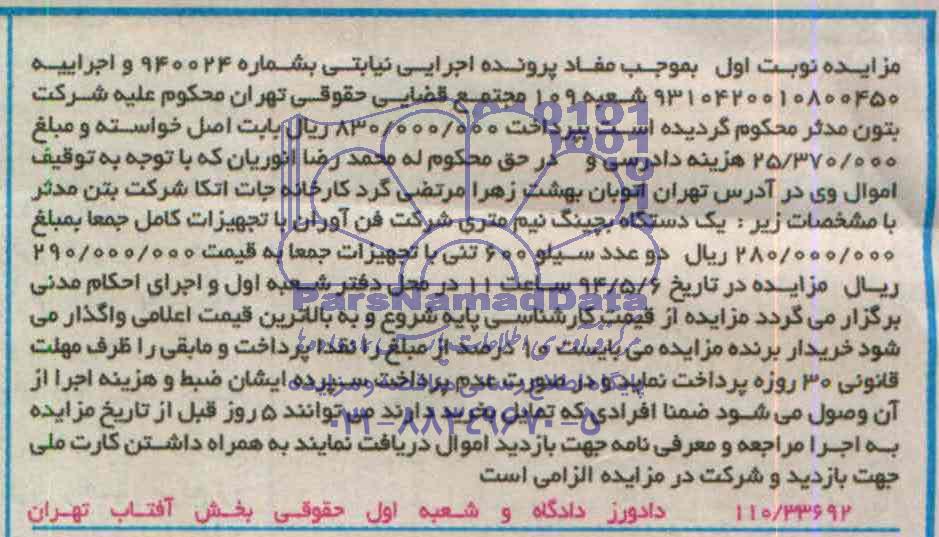 مزایده نوبت اول بموجب مفاد پرونده اجرایی نیابتی بشماره ۹۴۰۰۲۴ و اجراییه
۹۳۱۰۴۲۰۰۱۰۸۰۰۴۵۰ شعبه ۱۰۹ مجتمع قضایی حقوقی تهران محکوم علیه شرکت
بتون مدثر محکوم گردیده است بپرداخت ۸۳۰/۰۰۰/۰۰۰ ریال بابت اصل خواسته و مبلغ
۲۵/۳۷۰/۰۰۰ هزینه دادرسی و در حق محکوم له محمد رضا انوریان که با توجه به توقیف
اموال وی در آدرس تهران اتوبان بهشت زهرا مرتضی گرد کارخانه جات اتکا شرکت بتن مدثر
با مشخصات زیر : یک دستگاه بچینگ نیم متری شرکت فن آوران با تجهیزات کامل جمعا بمبلغ
۲۸۰/۰۰۰/۰۰۰ ریال دو عدد سیلو ۶۰۰ تنی با تجهیزات جمعا به قیمت ۲۹۰/۰۰۰/۰۰۰
ریال مزایده در تاریخ ۹۴/۵/۶ ساعت ۱۱ در محل دفتر شعبه اول و اجرای احکام مدنی
ParsNamadData
برگزار می گردد مزایده از قیمت کارشناسی پایه شروع و به بالاترین قیمت اعلامی واگذار می
شود خریدار برنده مزایده می بایست ۱۰ درصد از مبلغ را نقدا پرداخت و مابقی را ظرف مهلت
قانونی ۳۰ روزه پرداخت نماید و در صورت عدم پرداخت سپرده ایشان ضبط و هزینه اجرا از
آن وصول می شود ضمنا افرادی که تمایل بخرید دارند می توانند ۵ روز قبل از تاریخ مزایده
۰۲۱-۸۸۳۴۹۶۷۰-۵
به اجرا مراجعه و معرفی نامه جهت بازدید اموال دریافت نمایند به همراه داشتن کارت ملی
جهت بازدید و شرکت در مزایده الزامی است
۱۱۰/۳۳۶۹۲ دادورز دادگاه و شعبه اول حقوقی بخش آفتاب تهران